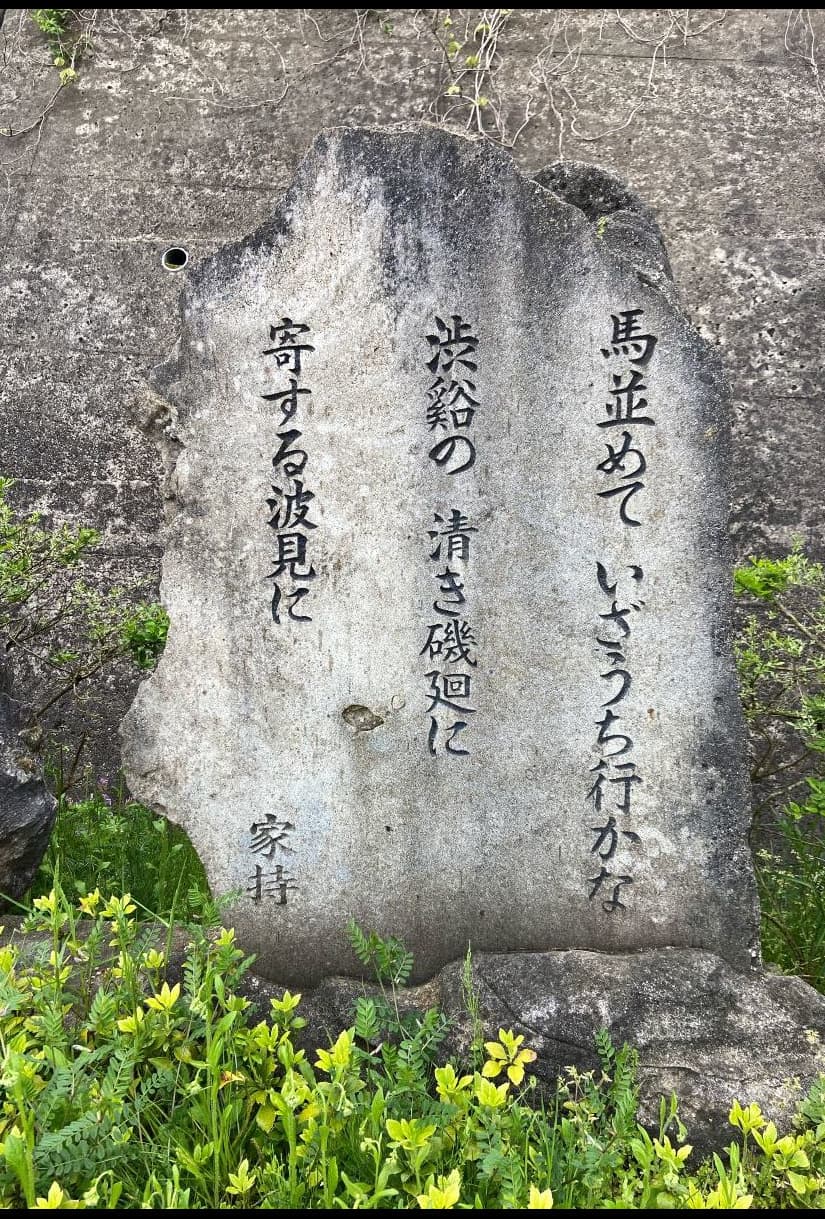 馬並めて いざうち行かな
渋谿の 清き磯廻に
寄する波見に
家持